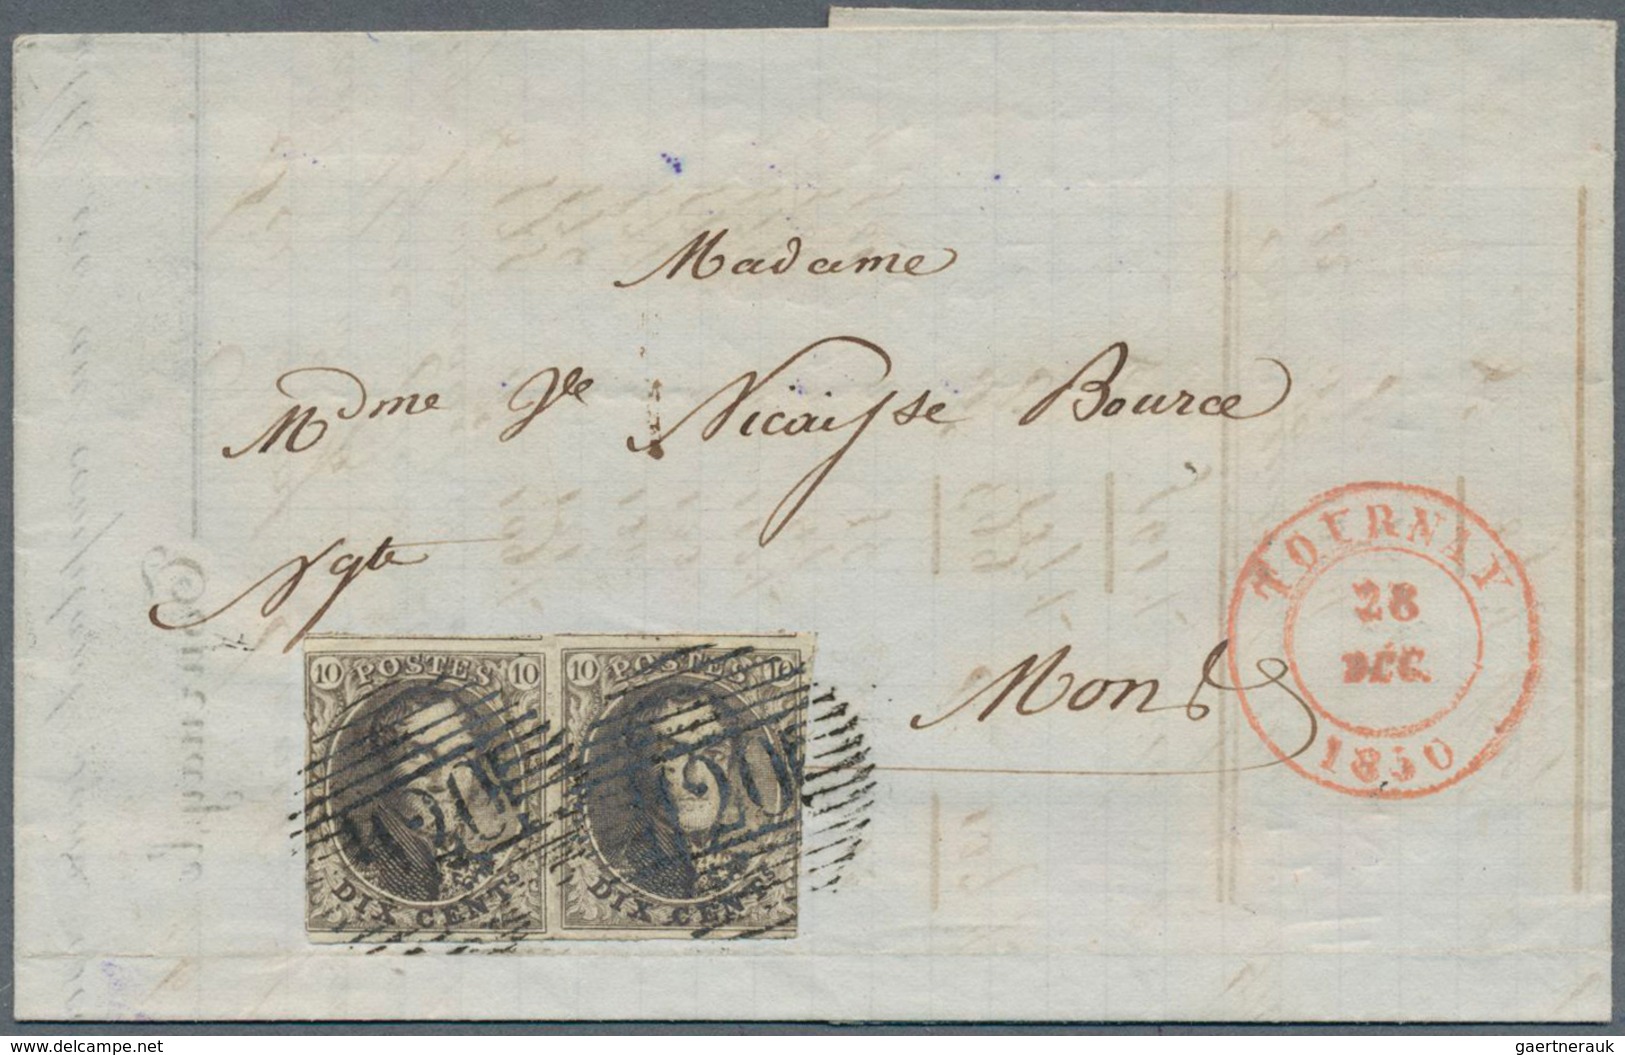 Madame
Mdme Ve Nicaijse Bource
Ngte
Mons
TOURNAY
28
DEC.
1850
10 POSTES 10
10 POSTES 10
120
120
DIX CENTS.
DIX CENTS.
www.delcampe.net
gaertnerauk